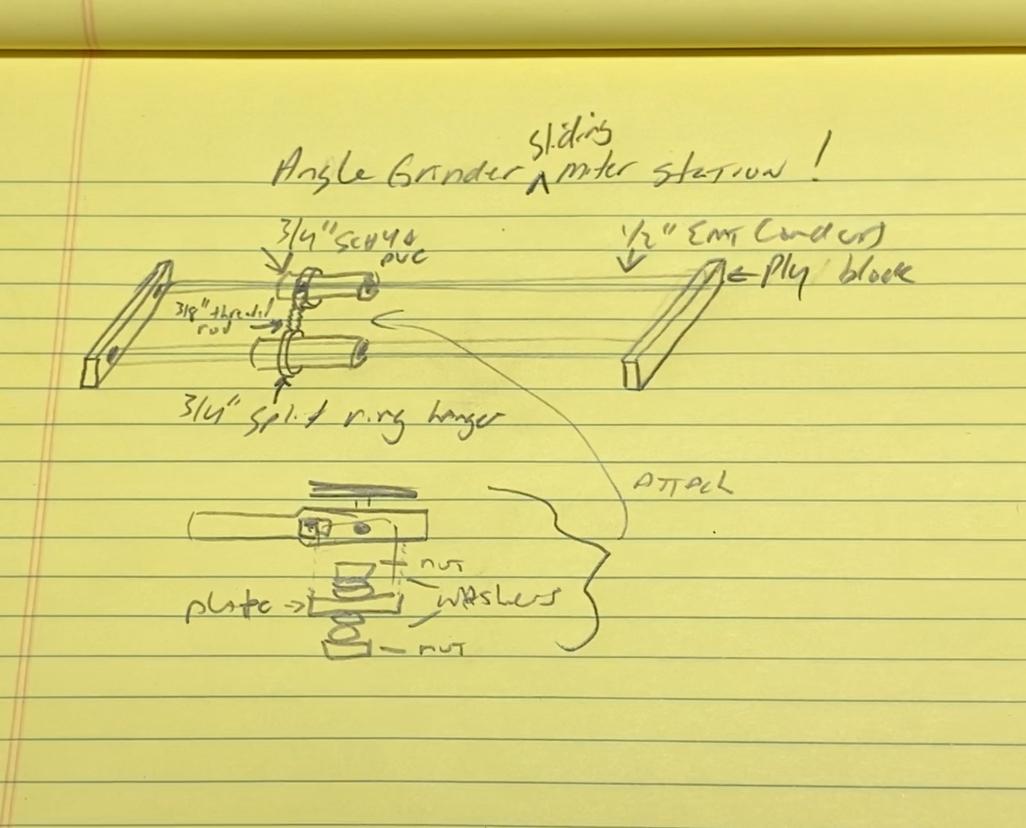 sliding
Angle Grinder ^ miter station !
3/4" SCH40
PVC
1/2" EMT Conduit
← Ply block
3/8" threaded
rod →
3/4" split ring hanger
ATTACH
nut
plate →
washers
nut